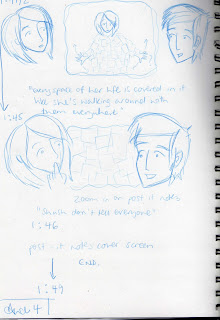 "every space of her life is covered in it
like she's walking around with
them everywhere"
1:45
zoom in on post it notes
"Shush don't tell everyone"
1:46
post-it notes cover screen
END.
1:49